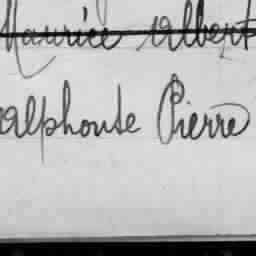 Maurice Albert
Alphonse Pierre